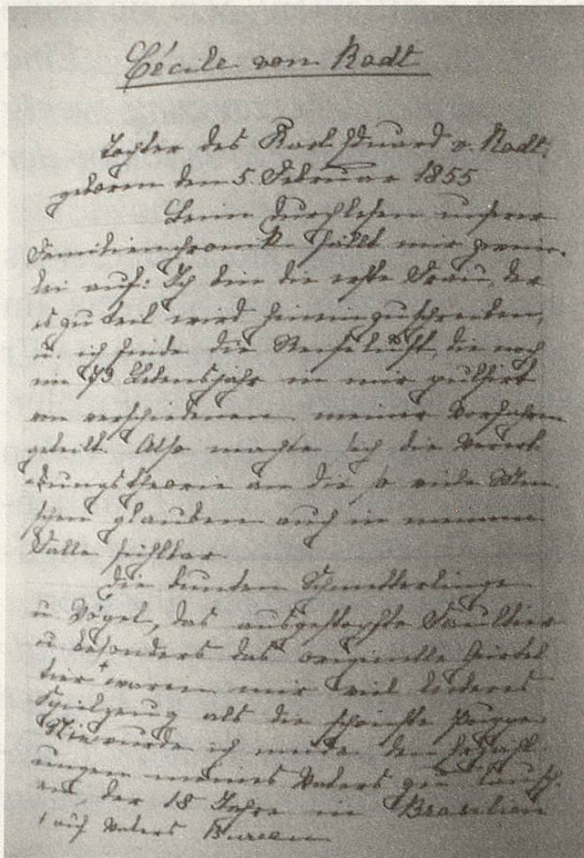 Cécile von Rodt
Tochter des Karl Eduard v. Rodt,
geboren den 5. Februar 1855
Beim Durchlesen unserer
Familienchronik fällt mir zweier-
lei auf: Ich bin die erste Frau, der
es zu teil wird hineinzuschreiben,
u. ich finde die Reiselust, die noch
im 73 Lebensjahr in mir pulsirt
von verschiedenen meiner Vorfahren
geteilt. Also machte sich die Vererb-
ungstheorie an die so viele Men
schen glauben auch in meinem
Falle fühlbar
Die bunten Schmetterlinge
u. Vögel, das ausgestopfte Faultier
u. besonders das originelle Gürtel
tier waren mir viel lieberes
Spielzeug als die schönste Puppe
Nie wurde ich müde den Erzähl
ungen meines Vaters zu lausch-
en, der 18 Jahre in Brasilien
auf Vaters Bureau